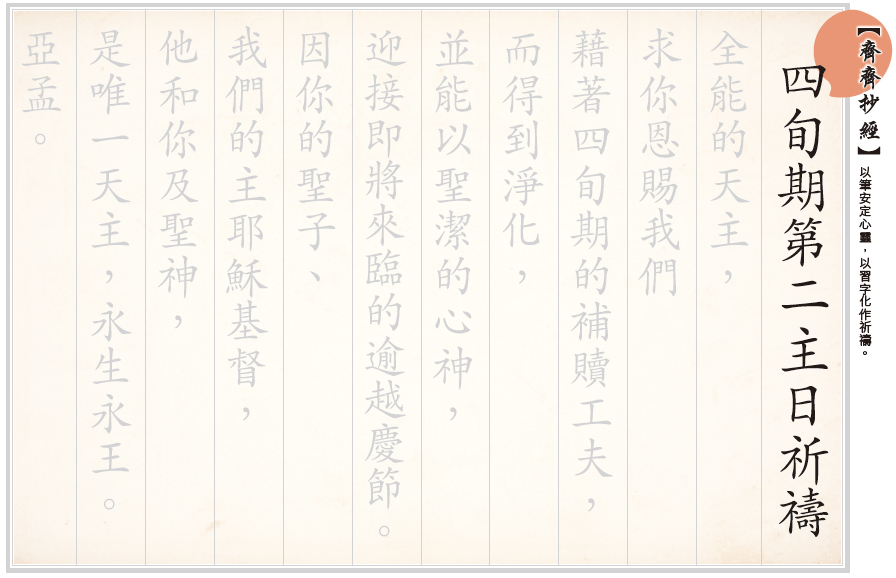 【齊齊抄經】
以筆安定心靈，以習字化作祈禱。
四旬期第二主日祈禱
全能的天主，
求你恩賜我們
藉著四旬期的補贖工夫，
而得到淨化，
並能以聖潔的心神，
迎接即將來臨的逾越慶節。
因你的聖子、
我們的主耶穌基督，
他和你及聖神，
是唯一天主，永生永王。
亞孟。